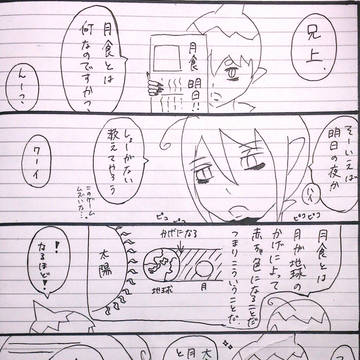 兄上、
月食
明日!!
月食とは
何なのですかっ?
んーっ?
そーいえば
明日の夜か
ハイ
しょーがない
教えてやろう
ワーイ
このゲーム
ピコピコ
ピコピコ
月食とは
月が地球の
かげによって
赤茶色になることだ
つまりこういうことだ
かげになる
地球
月
太陽
!
なるほど!